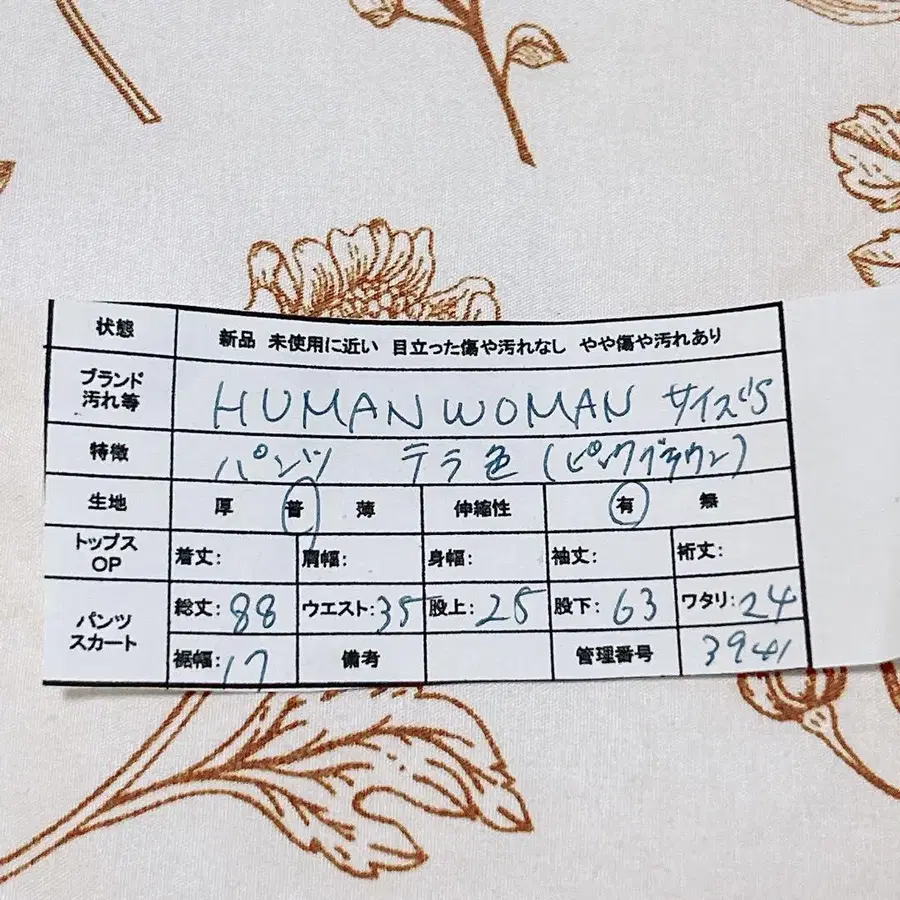 状態 新品 未使用に近い 目立った傷や汚れなし やや傷や汚れあり
ブランド
汚れ等 HUMAN WOMAN サイズS
特徴 パンツ テラ色(ピンクブラウン)
生地 厚 普 薄 伸縮性 有 無
トップス
OP 着丈: 肩幅: 身幅: 袖丈: 裄丈:
パンツ
スカート 総丈:88 ウエスト:35 股上:25 股下:63 ワタリ:24
裾幅:17 備考 管理番号 3941